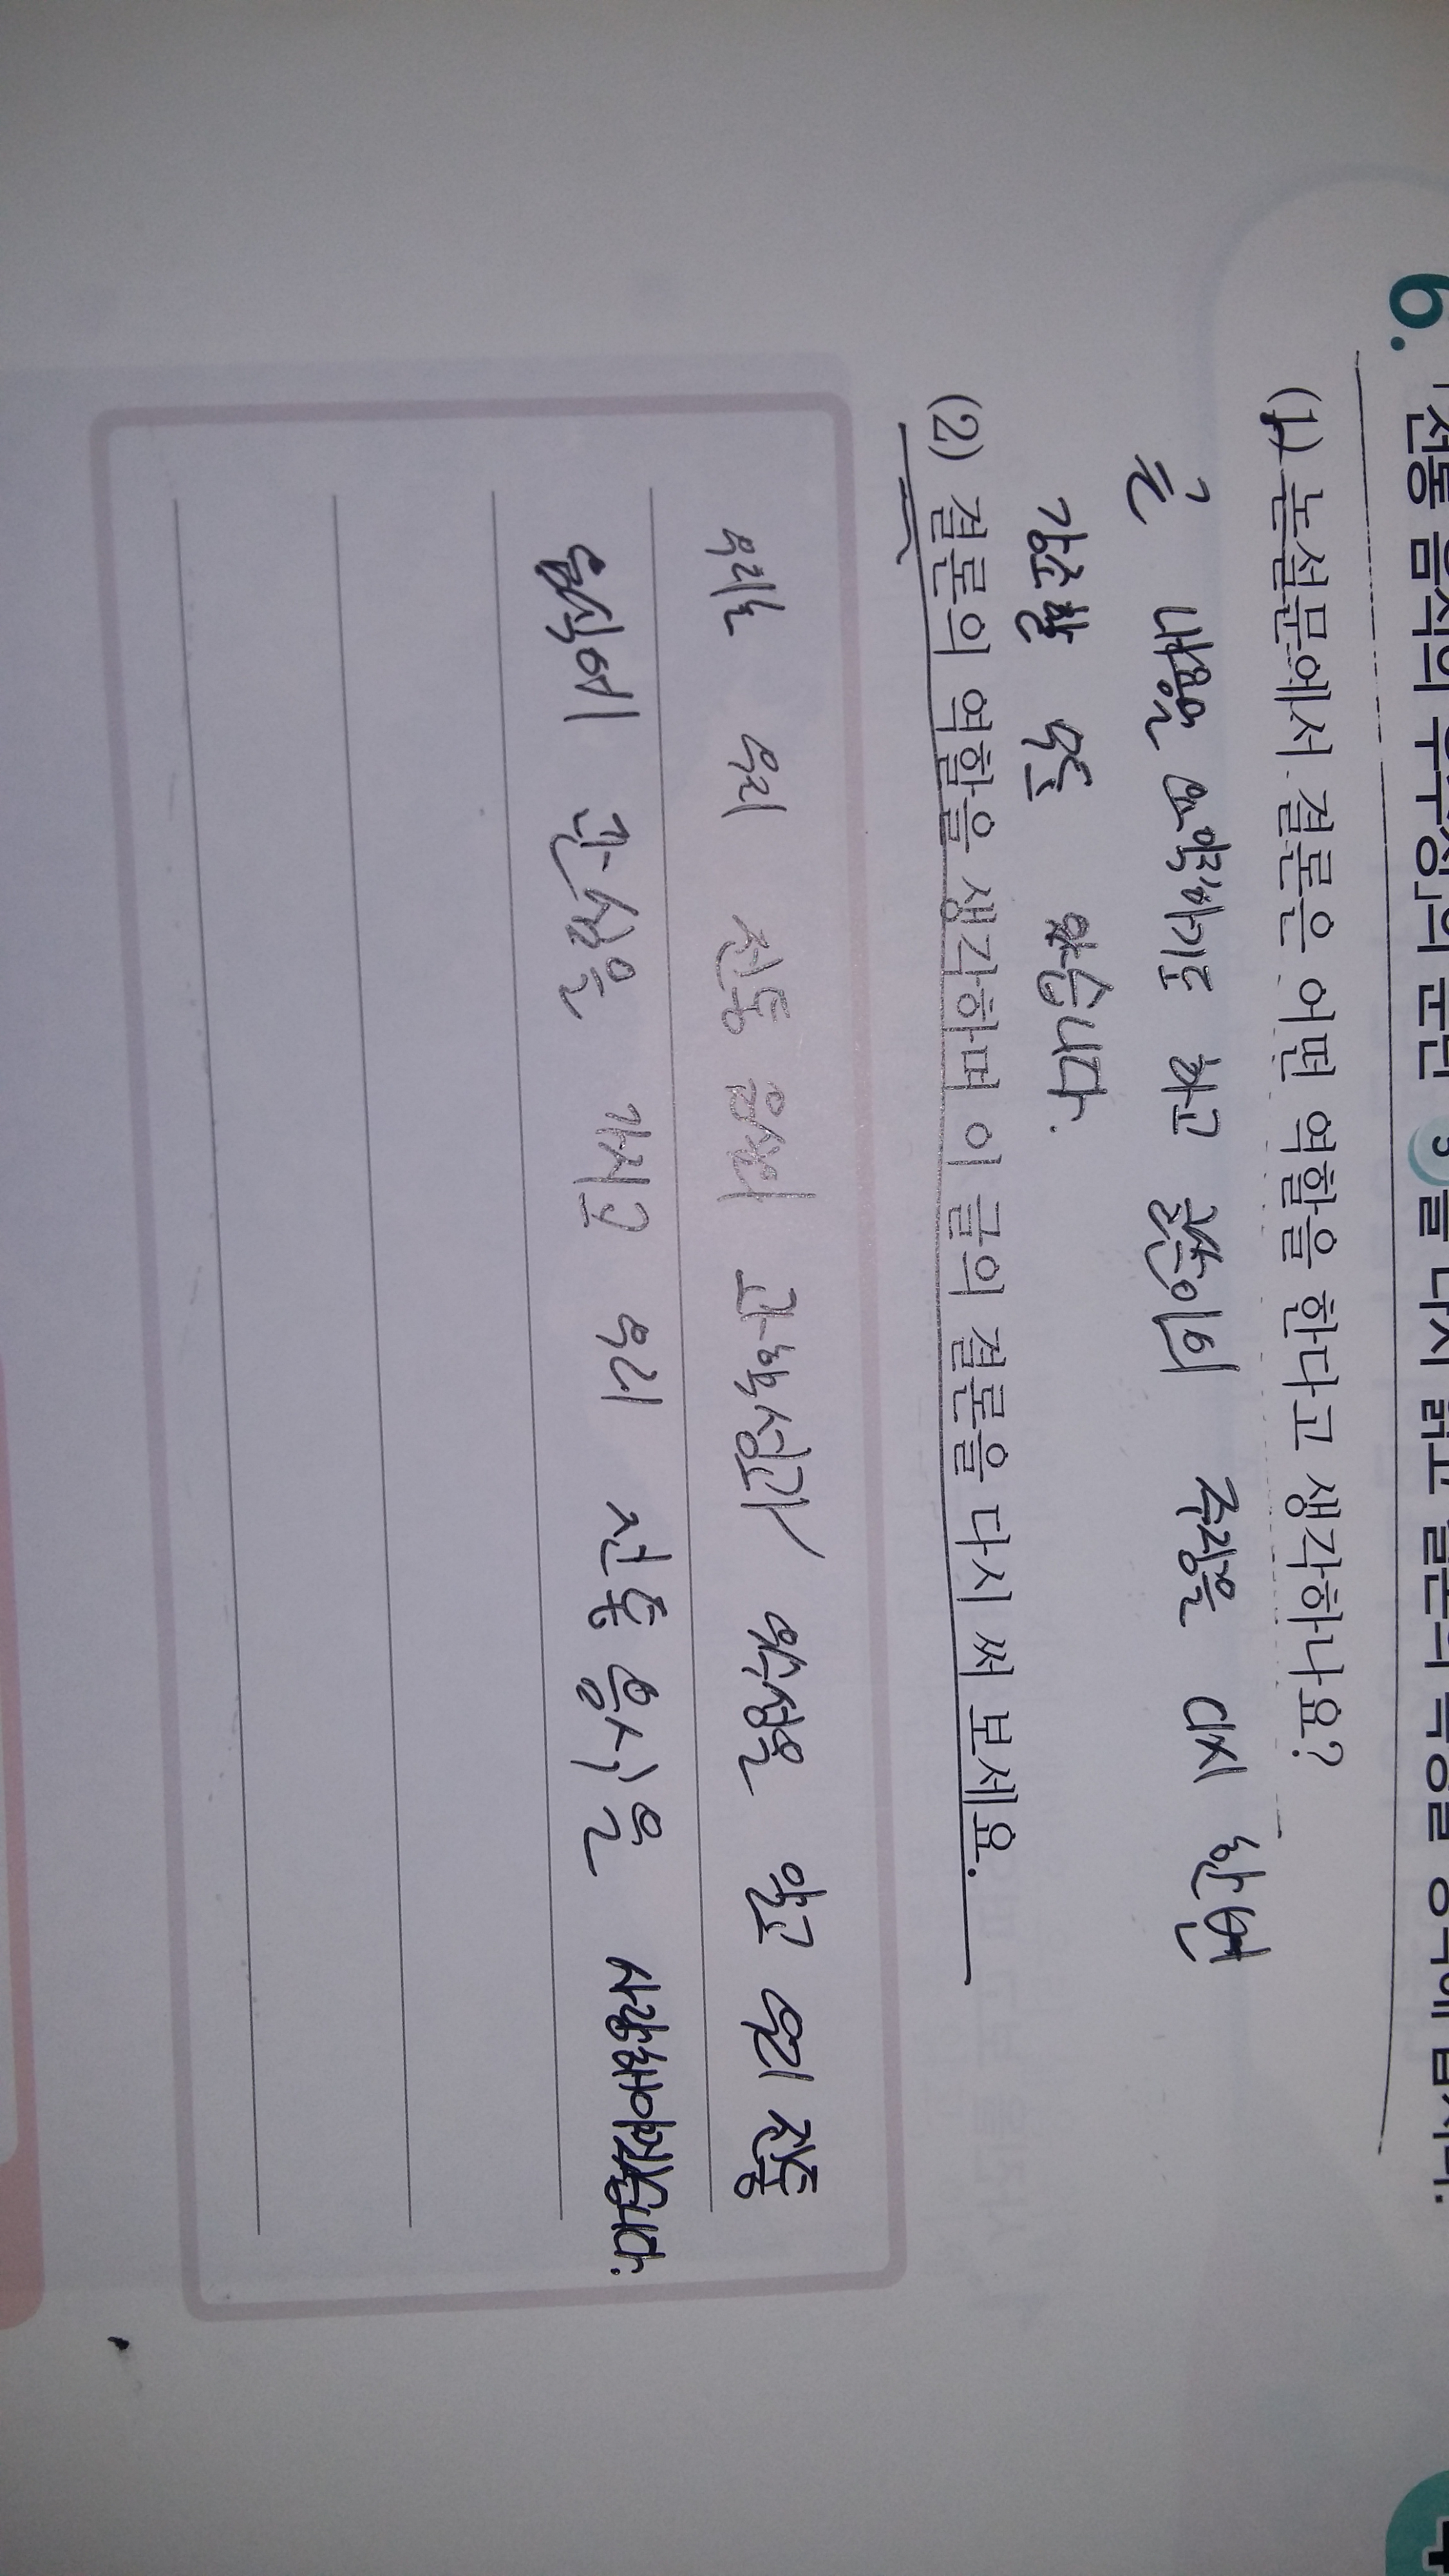 6. 「전통 음식의 우수성」의 문단 5를 다시 읽고 결론의 특성을 생각해 봅시다.
(1) 논설문에서 결론은 어떤 역할을 한다고 생각하나요?
글 내용을 요약하기도 하고 글쓴이의 주장을 다시 한번
강조할 수도 있습니다.
(2) 결론의 역할을 생각하며 이 글의 결론을 다시 써 보세요.
우리는 우리 전통 음식의 과학성과 우수성을 알고 우리 전통
음식에 관심을 가지고 우리 전통 음식을 사랑해야겠습니다.